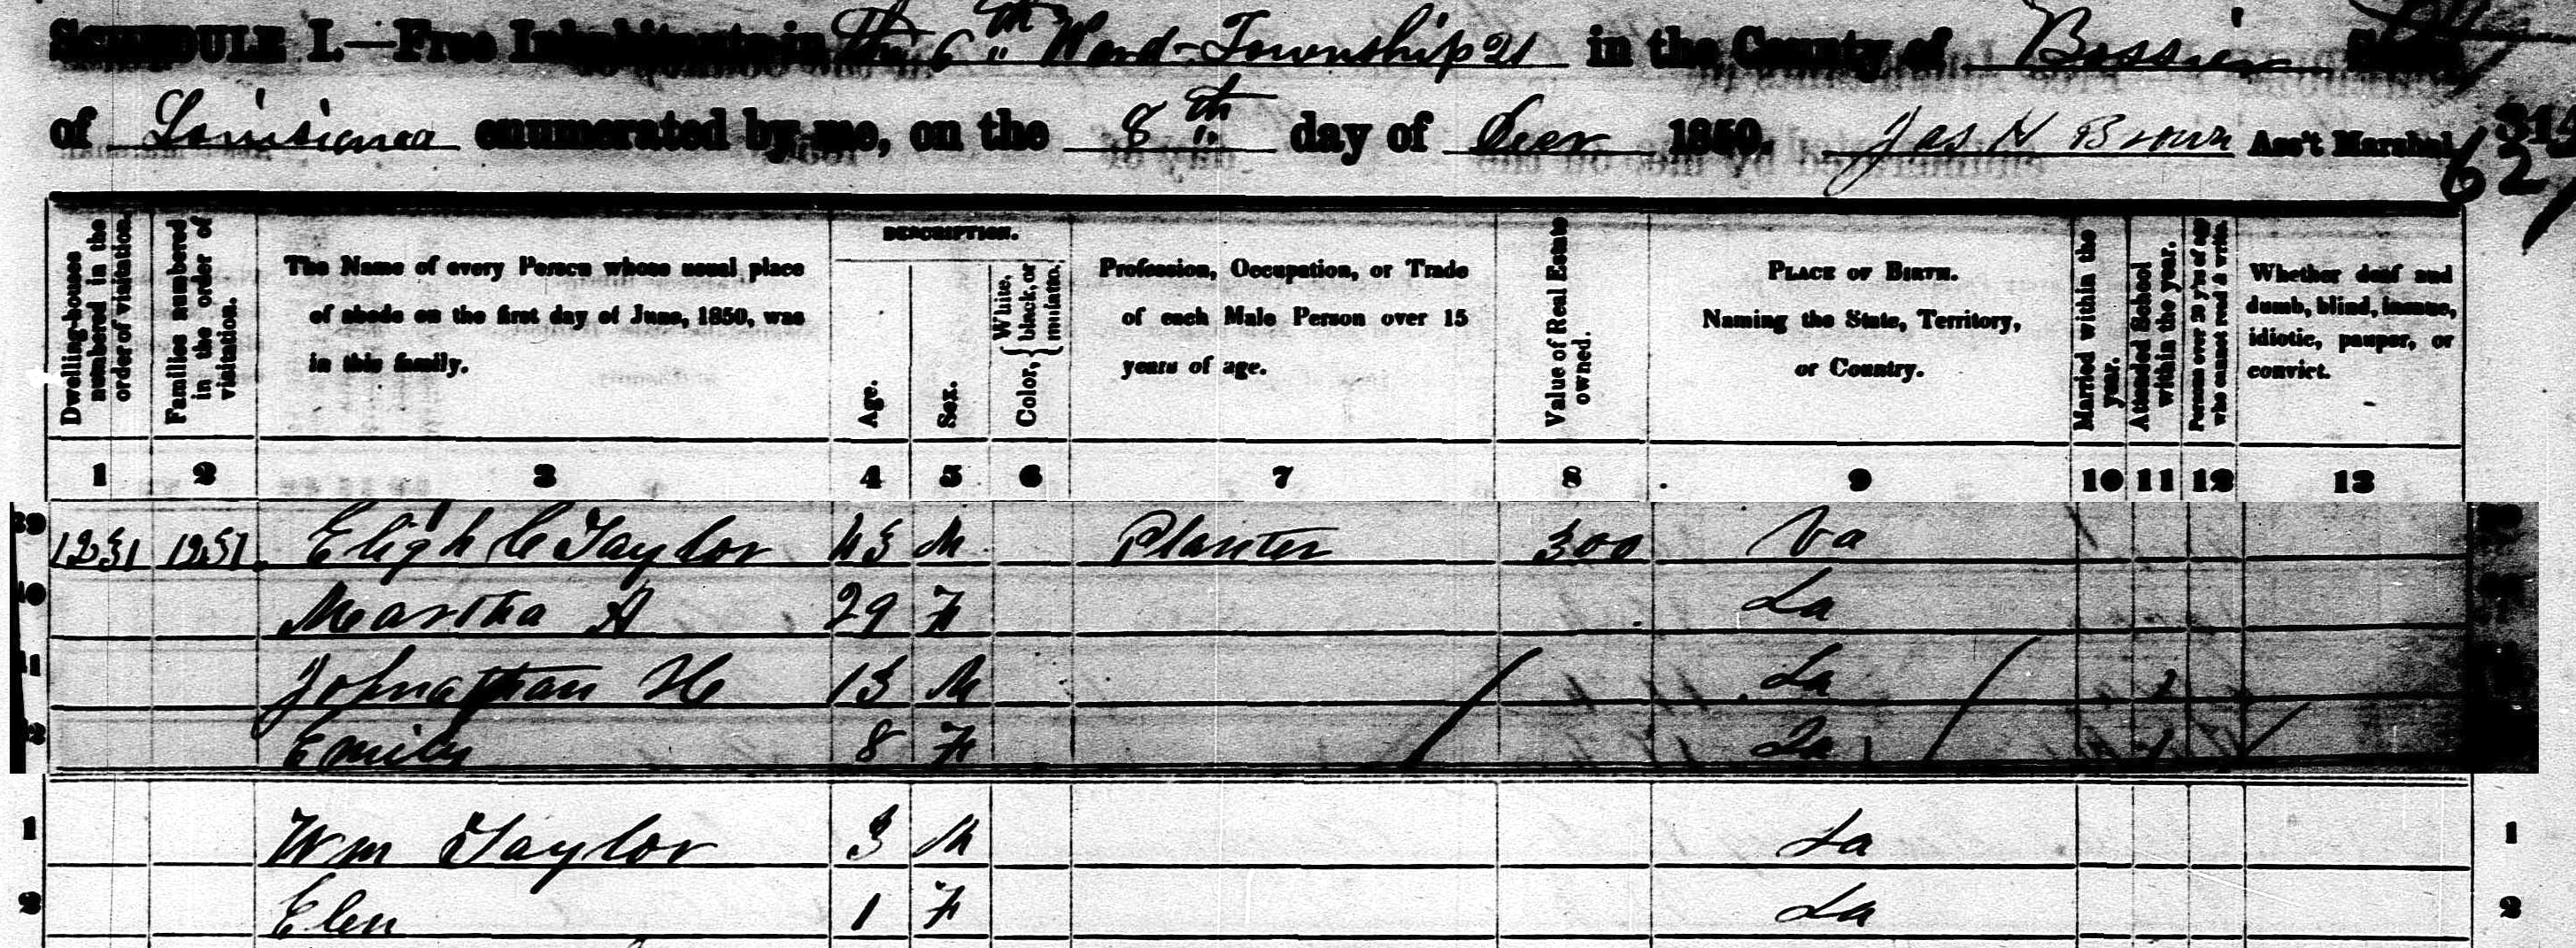 SCHEDULE I.—Free Inhabitants in the 6th Ward-Township 21 in the County of Bossier State
of Louisiana enumerated by me, on the 8th day of Decr 1850. Jas N Brown Ass't Marshal
Dwelling-houses numbered in the order of visitation.
Families numbered in the order of visitation.
The Name of every Person whose usual place of abode on the first day of June, 1850, was in this family.
DESCRIPTION.
Age.
Sex.
Color, { White, black, or mulatto.
Profession, Occupation, or Trade of each Male Person over 15 years of age.
Value of Real Estate owned.
PLACE OF BIRTH.
Naming the State, Territory, or Country.
Married within the year.
Attended School within the year.
Persons over 20 y'rs of age who cannot read & write.
Whether deaf and dumb, blind, insane, idiotic, pauper, or convict.
1 2 3 4 5 6 7 8 9 10 11 12 13
39 1231 1231 Eligh C Taylor 43 M Planter 300 Va
40 Martha A 29 F La
41 Johnathan H 13 M La 1
42 Emily 8 F La 1
1 Wm Taylor 3 M La 1
2 Elen 1 F La 2